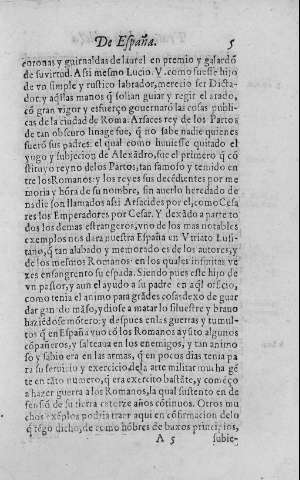 De España. 5
coronas y guirnaldas de laurel en premio y galardõ
de su virtud. Assi mesmo Lucio. V. como fuesse hijo
de vn simple y rustico labrador, merecio ser Dicta-
dor: y aq̃llas manos q̃ solian guiar y regir el arado,
cõ gran vigor y esfuerço gouernarõ las cosas publi-
cas de la ciudad de Roma. Arsaces rey de los Partos
de tan obscuro linage fue, q̃ no sabe nadie quienes
fuerõ sus padres: el qual como huuiesse quitado el
yugo y subjecion de Alexãdro, fue el primero q̃ cõ
stituyo reyno delos Partos, tan famoso y temido en
tre los Romanos: y los reyes sus decẽdientes por me
moria y hõra de su nombre, sin auerlo heredado de
nadie son llamados assi Arsacides por el, como Cesa
res los Emperadores por Cesar. Y dexãdo a parte to
dos los demas estrangeros, vno de los mas notables
exemplos nos dara nuestra España en Vriato Lusi-
tano, q̃ tan alabado y memorado es de los autores, y
de los mesmos Romanos: en los quales infinitas ve
zes ensangrento su espada. Siendo pues este hijo de
vn pastor, y aun el ayudo a su padre en aq̃l oficio,
como tenia el animo para grãdes cosas dexo de guar
dar ganado mãso, y diose a matar lo siluestre y brauo
haziẽdose mõtero: y despues en las guerras y tumul-
tos q̃ en España vuo cõ los Romanos ayũto algunos
cõpañeros, y salteaua en los enemigos, y tan animo
so y sabio era en las armas, q̃ en pocos dias tenia pa
ra su seruicio y exercicio dela arte militar mucha gẽ
te en tãto numero, q̃ era exercito bastãte, y començo
a hazer guerra a los Romanos, la qual sustento en de
fensiõ de su tierra catorze años cõtinuos. Otros mu
chos exẽplos podria traer aqui en cõfirmacion delo
q̃ tẽgo dicho, de como hõbres de baxos principios,
A 5 subie-